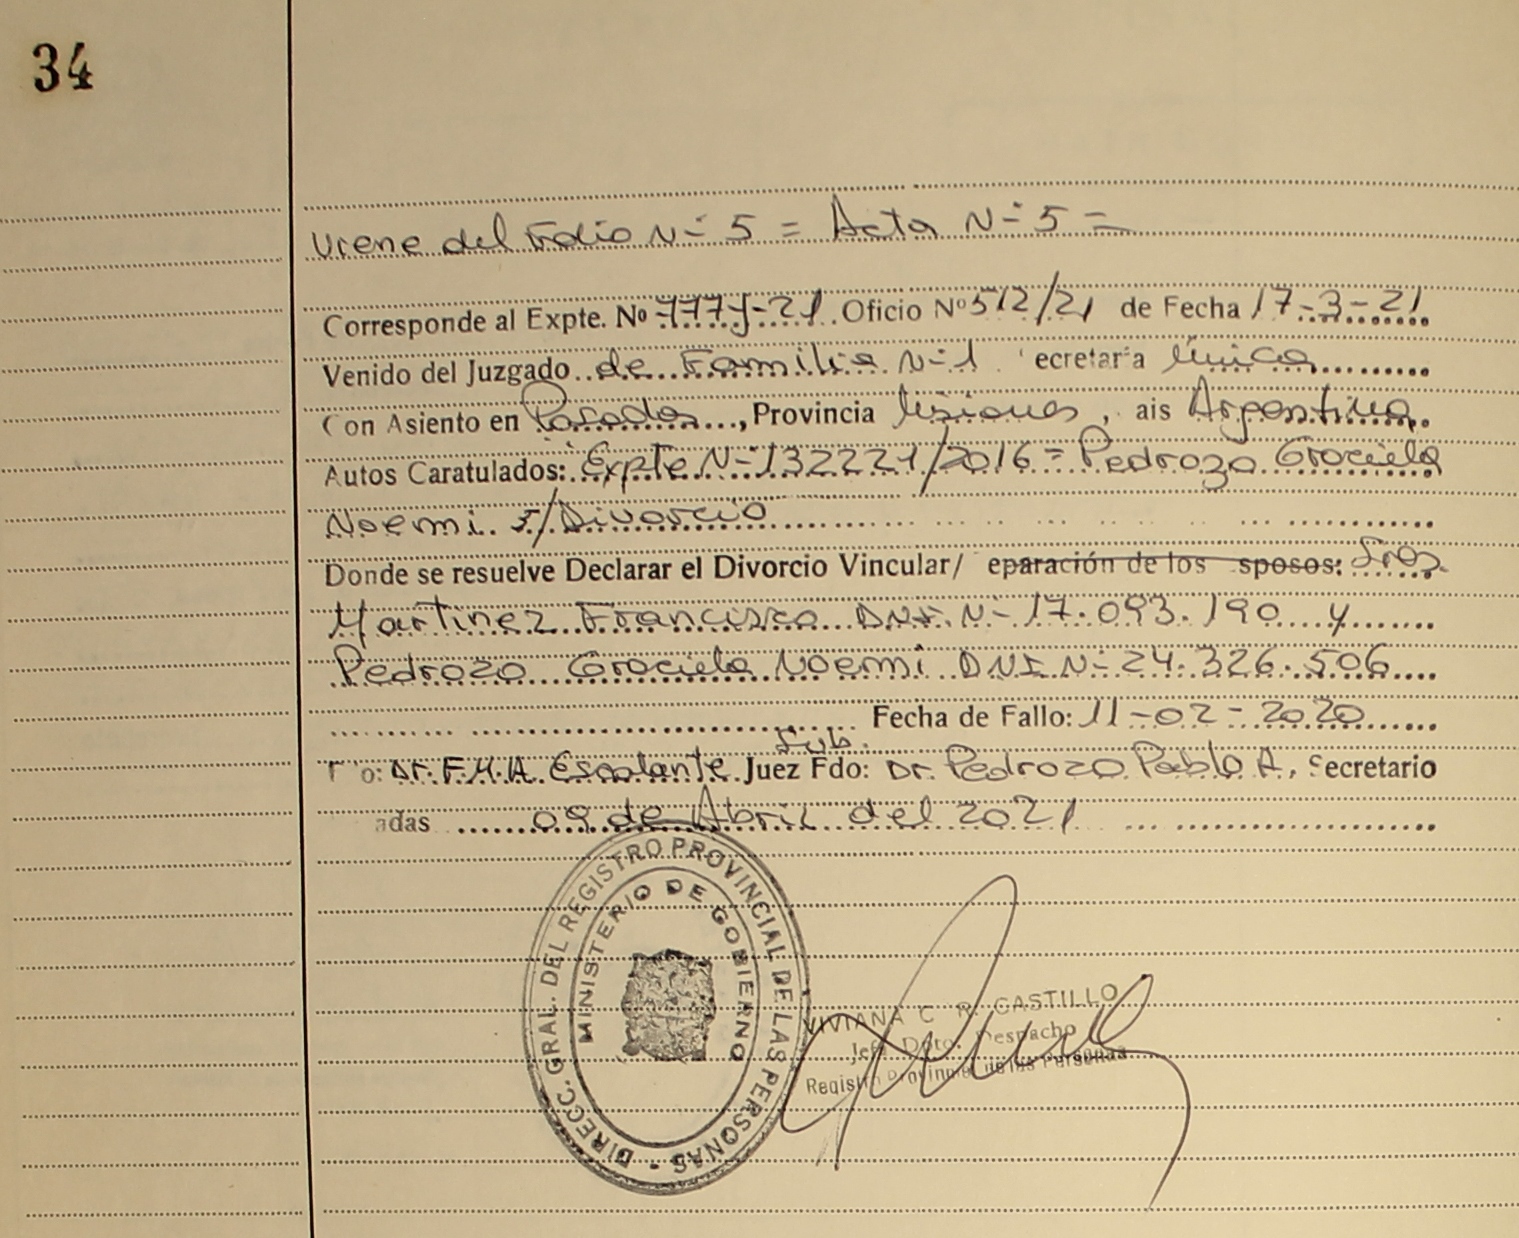 34
Viene del Folio N- 5 = Acta N- 5 =
Corresponde al Expte. No 777J-21 Oficio Nº 512/21 de Fecha 17-3-21
Venido del Juzgado de Familia N-1 ecretaria Única
Con Asiento en Posadas, Provincia Misiones, ais Argentina
Autos Caratulados: Expte N-132221/2016 = Pedrozo Graciela
Noemi S/Divorcio
Donde se resuelve Declarar el Divorcio Vincular/ eparación de los sposos: Sres
Martinez Francisco DNI. N- 17.093.190 y
Pedrozo Graciela Noemi DNI N- 24.326.506
Fecha de Fallo: 11-02-2020
Sub.
o: Dr. F.H.A. Escalante Juez Fdo: Dr. Pedrozo Pablo A, Secretario
adas 09 de Abril del 2021
DIRECC. GRAL. DEL REGISTRO PROVINCIAL DE LAS PERSONAS -
MINISTERIO DE GOBIERNO
VIVIANA C R. CASTILLO
Jefe Dpto. Despacho
Registro Provincial de las Personas